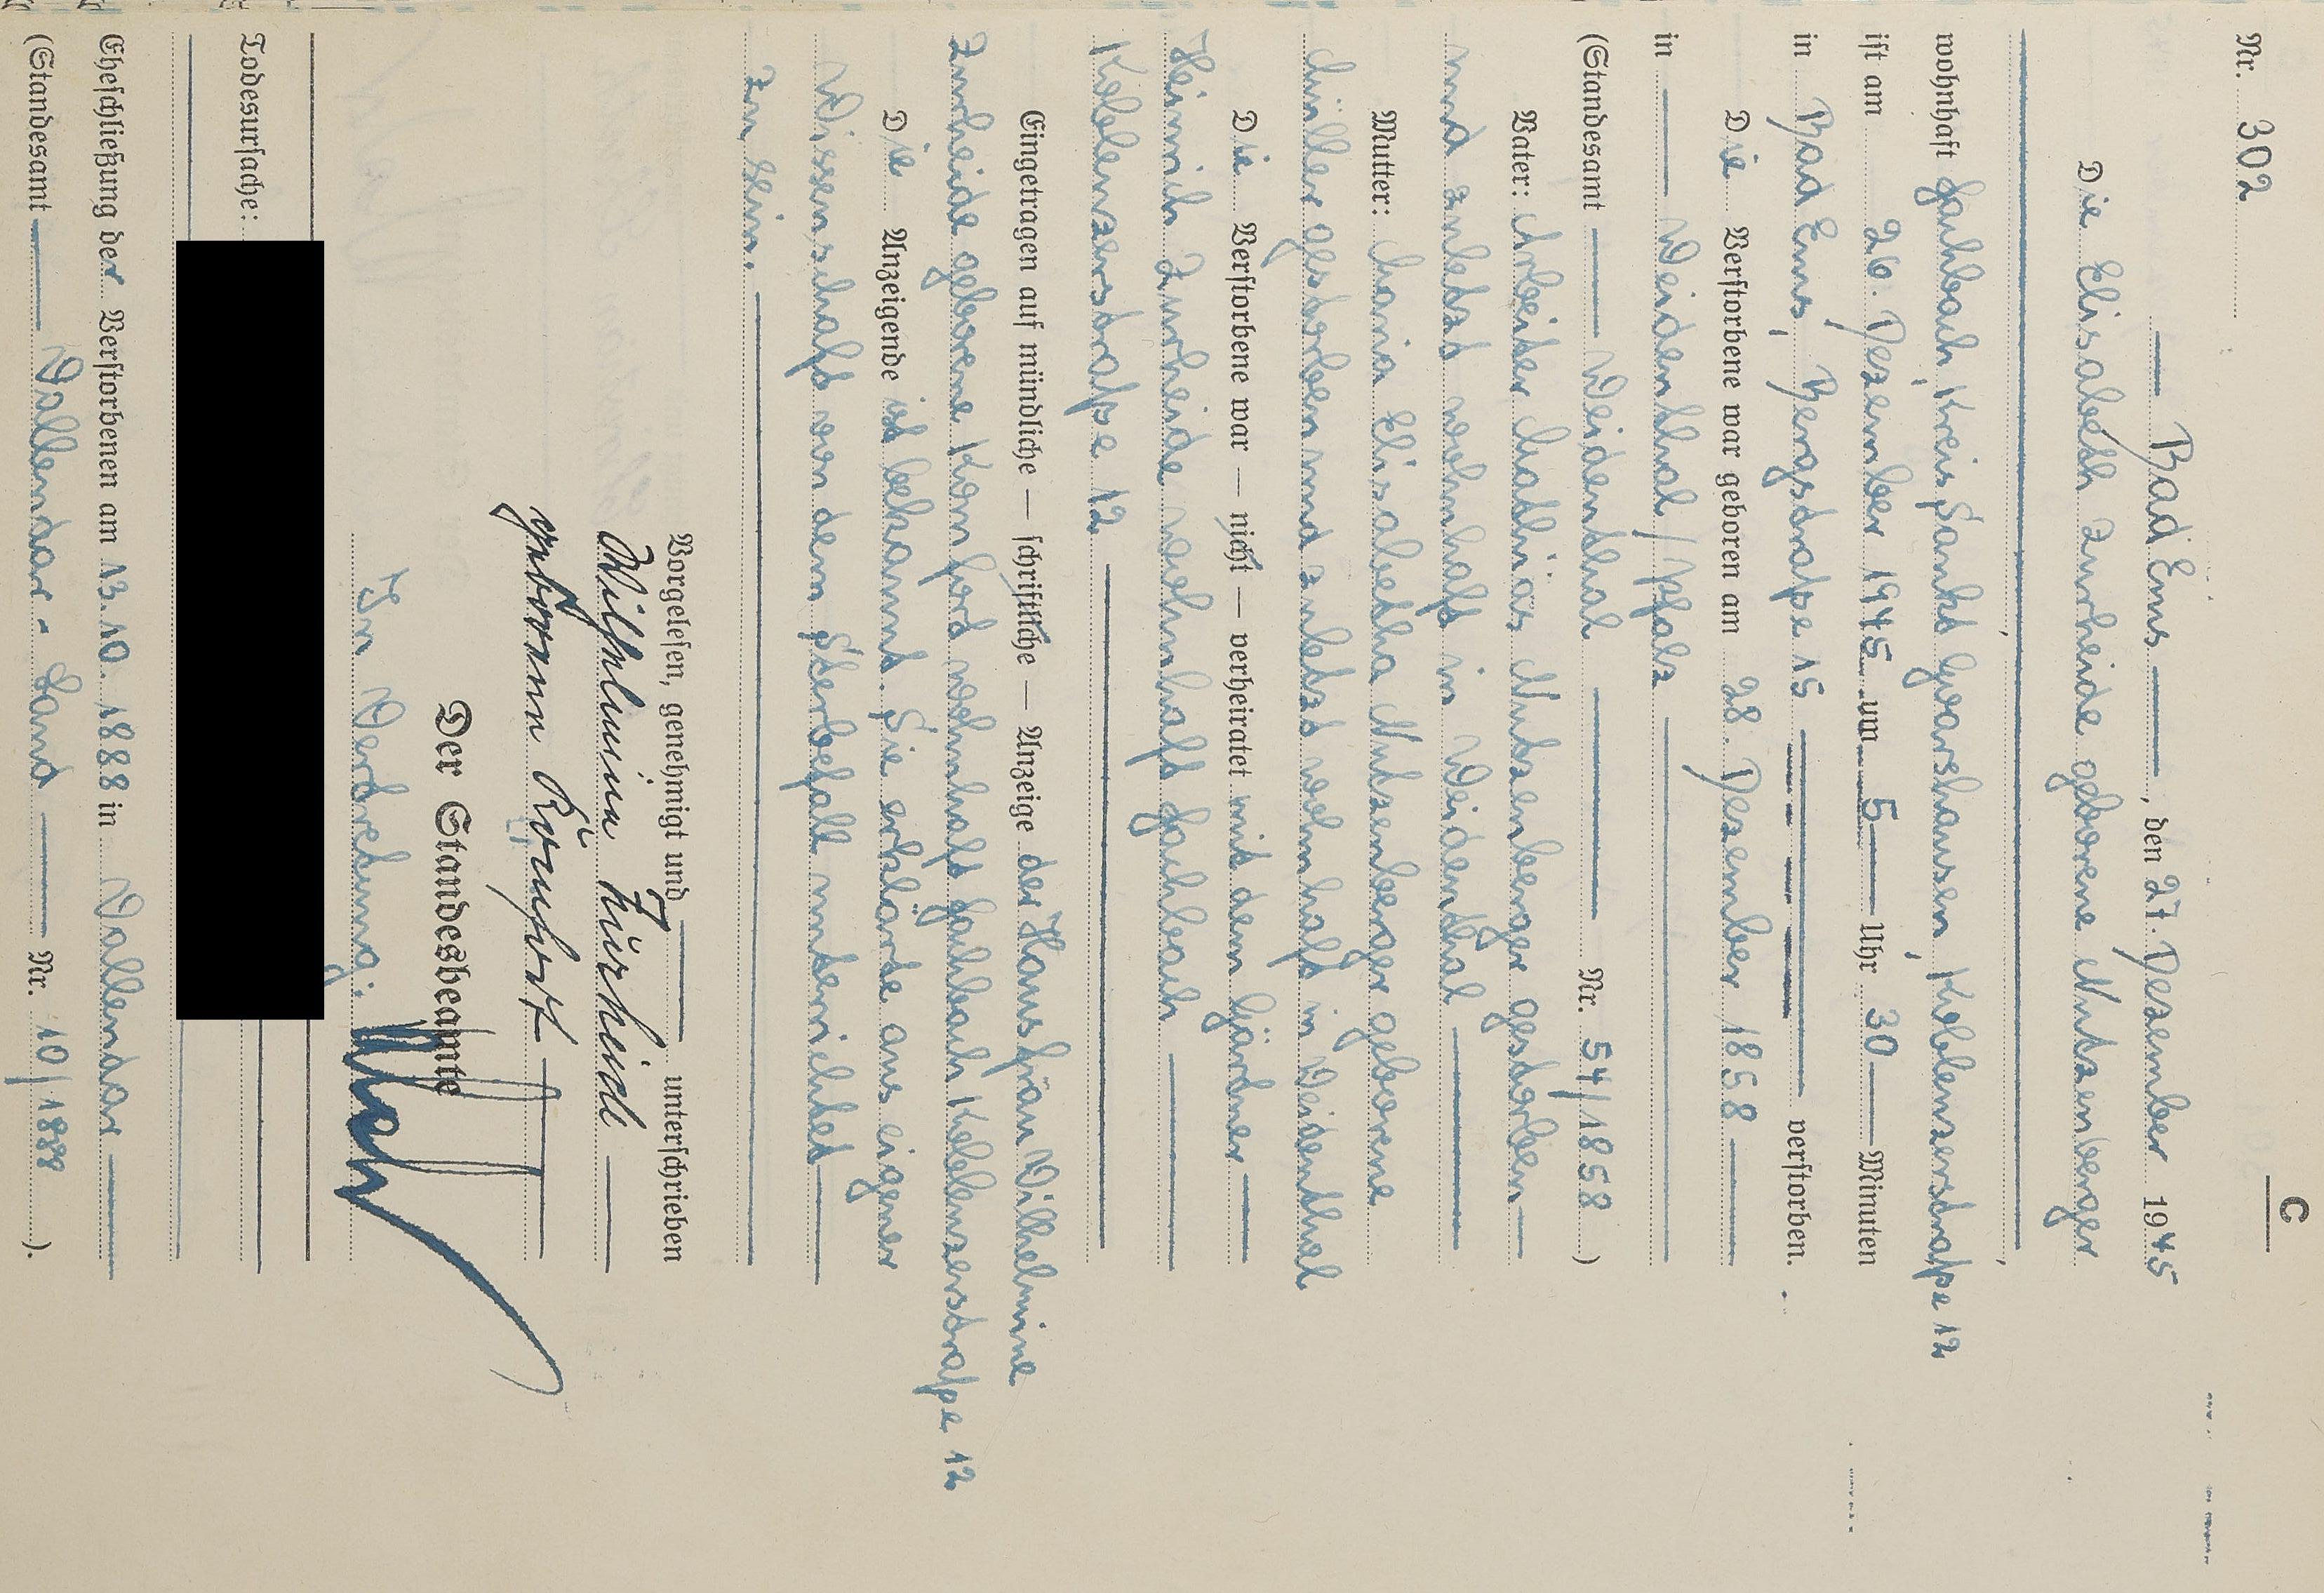 C
Nr. 302
— Bad Ems —, den 27. Dezember 1945
Die Elisabeth Zurheide geborene Nutzenberger
wohnhaft Fachbach, Kreis Sankt Goarshausen, Koblenzerstraße 12
ist am 26. Dezember 1945 um 5 — Uhr 30 — Minuten
in Bad Ems, Bergstraße 15 — verstorben.
Die Verstorbene war geboren am 28. Dezember 1858 —
in — Weidenthal / Pfalz —
(Standesamt — Weidenthal — Nr. 54/1858)
Vater: Arbeiter Mathias Nutzenberger gestorben —
und zuletzt wohnhaft in Weidenthal —
Mutter: Maria Elisabetha Nutzenberger geborene
Müller gestorben und zuletzt wohnhaft in Weidenthal
Die Verstorbene war — nicht — verheiratet mit dem Gärtner —
Heinrich Zurheide wohnhaft Fachbach —
Koblenzerstraße 12. —
Eingetragen auf mündliche — schriftliche — Anzeige der Hausfrau Wilhelmine
Zurheide geborene Komfort wohnhaft Fachbach Koblenzerstraße 12
Die Anzeigende ist bekannt. Sie erklärte aus eigener
Wissenschaft von dem Sterbefall unterrichtet —
zu sein. —
Vorgelesen, genehmigt und — unterschrieben
Wilhelmine Zürheide —
geborene —
Der Standesbeamte
In Vertretung:
Todesursache:
Eheschließung der Verstorbenen am 13. 10. 1888 in Vallendar —
(Standesamt — Vallendar - Land — Nr. 10/1888).